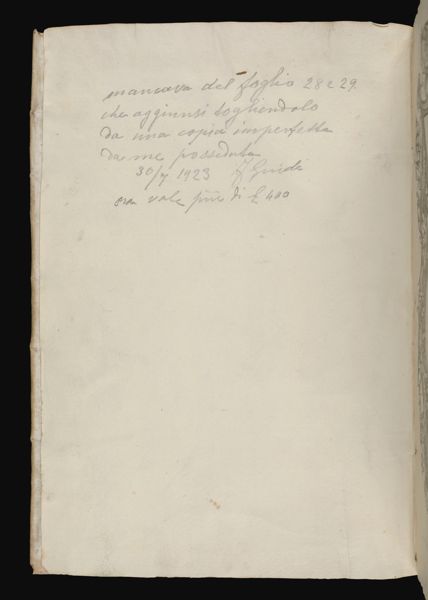 mancava del foglio 28 e 29.
che aggiunsi togliendolo
da una copia imperfetta
da me posseduta
30/7 1923 Guidi
ora vale più di £ 400